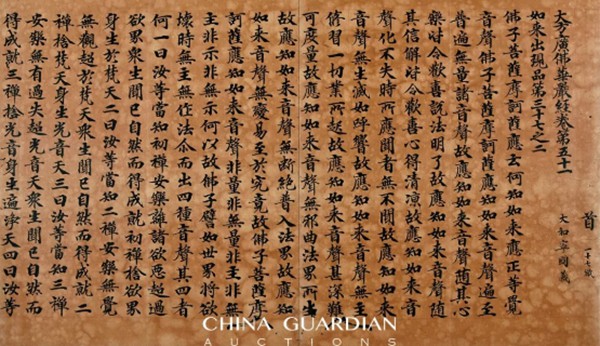 首
大和寧國藏
大方廣佛華嚴經卷第五十一
如來出現品第三十七之二
佛子菩薩摩訶薩應云何知如來應正等覺
音聲佛子菩薩摩訶薩應知如來音聲遍至
普遍無量諸音聲故應知如來音聲隨其心
樂皆令歡喜說法明了故應知如來音聲隨
其信解皆令歡喜心得清涼故應知如來音
聲化不失時所應聞者無不聞故應知如來
音聲無生滅如呼響故應知如來音聲無主
修習一切業所起故應知如來音聲甚深難
可度量故應知如來音聲無邪曲法界所生
故應知如來音聲無斷絕普入法界故應知
如來音聲無變易至於究竟故佛子菩薩摩
訶薩應知如來音聲非量非無量非主非無
主非示非無示何以故佛子譬如世界將欲
壞時無主無作法尒而出四種音聲其四者
何一曰汝等當知初禪安樂離諸欲惡超過
欲界眾生聞已自然而得成就初禪捨欲界
身生於梵天二曰汝等當知二禪安樂無覺
無觀超於梵天眾生聞已自然而得成就二
禪捨梵天身生光音天三曰汝等當知三禪
安樂無有過失超光音天眾生聞已自然而
得成就三禪捨光音身生遍淨天四曰汝等
CHINA GUARDIAN
AUCTIONS